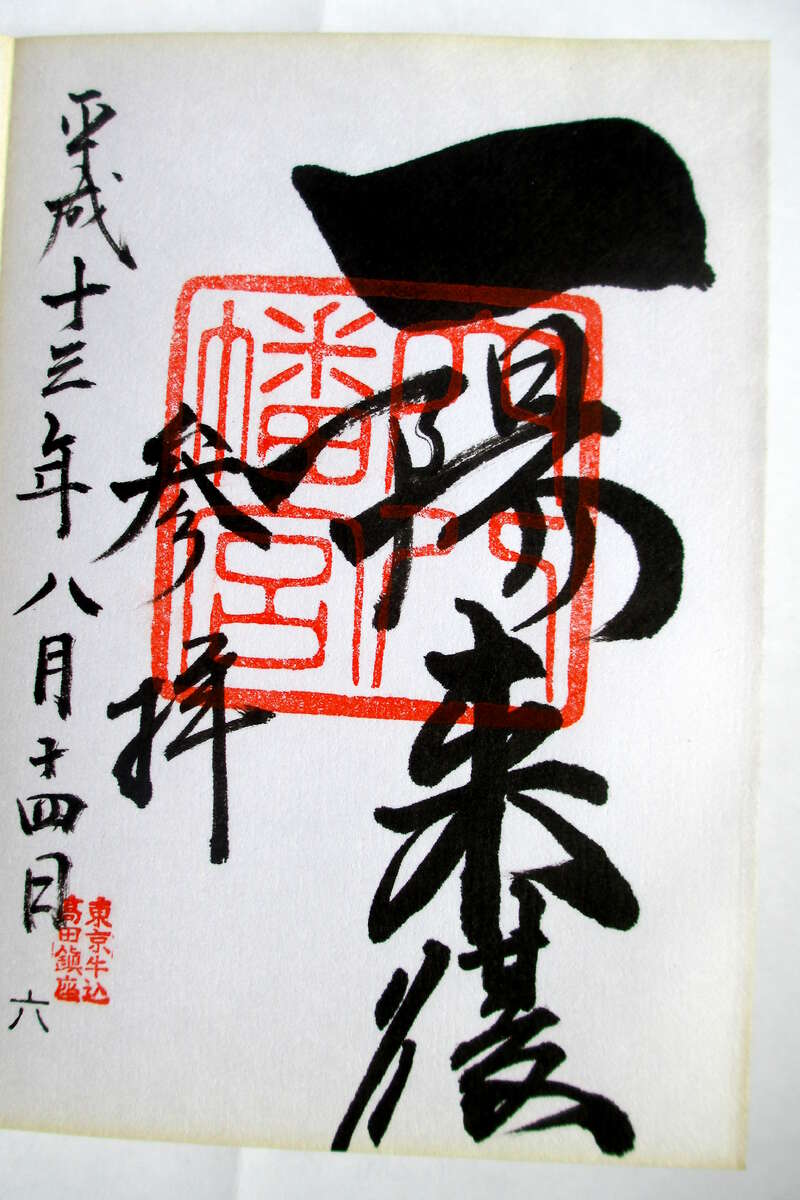 一陽来復
穴八
幡宮
参拝
平成十三年八月十四日
東京牛込
高田鎮座
六